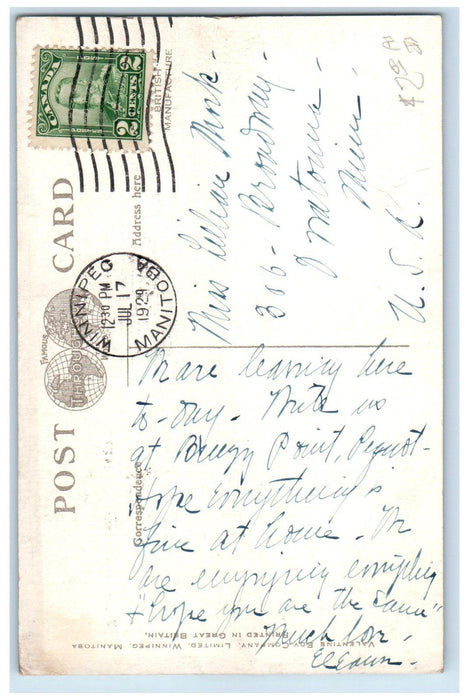 CANADA
POSTES POSTAGE
2 CENTS 2
BRITISH
MANUFACTURE
$2.00
POST CARD
FAMOUS
THROUGHOUT
Address here
WINNIPEG
12 30 PM
JUL 17
1929
MANITOBA
Miss Lillian
366 - Broadway
Owatonna
Minn
U. S. A.
Correspondence
We are leaving here
to-day. Write us
at Breezy Point, Pequot -
Hope everything is
fine at home. We
are enjoying everything
+ hope you are the same"
Much love -
VALENTINE EDY COMPANY, LIMITED, WINNIPEG, MANITOBA
PRINTED IN GREAT BRITAIN.